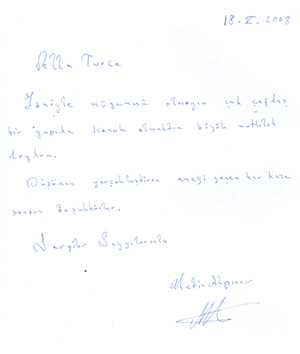 18.V.2008
Alla Turca
İsmiyle müsemma olmayan çok çağdaş
bir yapıda konuk olmaktan büyük mutluluk
duydum.
Düşünen gerçekleştiren emeği geçen herkese
sonsuz teşekkürler.
Sevgiler Saygılarımla
Metin Akpınar